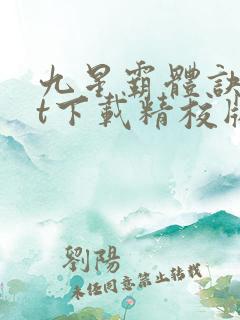 九星霸體訣
t下載精校版
劉陽
未經同意禁止轉載